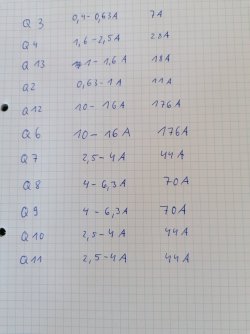 Q 3 0,4-0,63A 7A
Q 4 1,6-2,5A 28A
Q 13 1-1,6A 18A
Q2 0,63-1A 11A
Q12 10-16A 176A
Q 6 10-16A 176A
Q 7 2,5-4A 44A
Q 8 4-6,3A 70A
Q 9 4-6,3A 70A
Q 10 2,5-4A 44A
Q 11 2,5-4A 44A